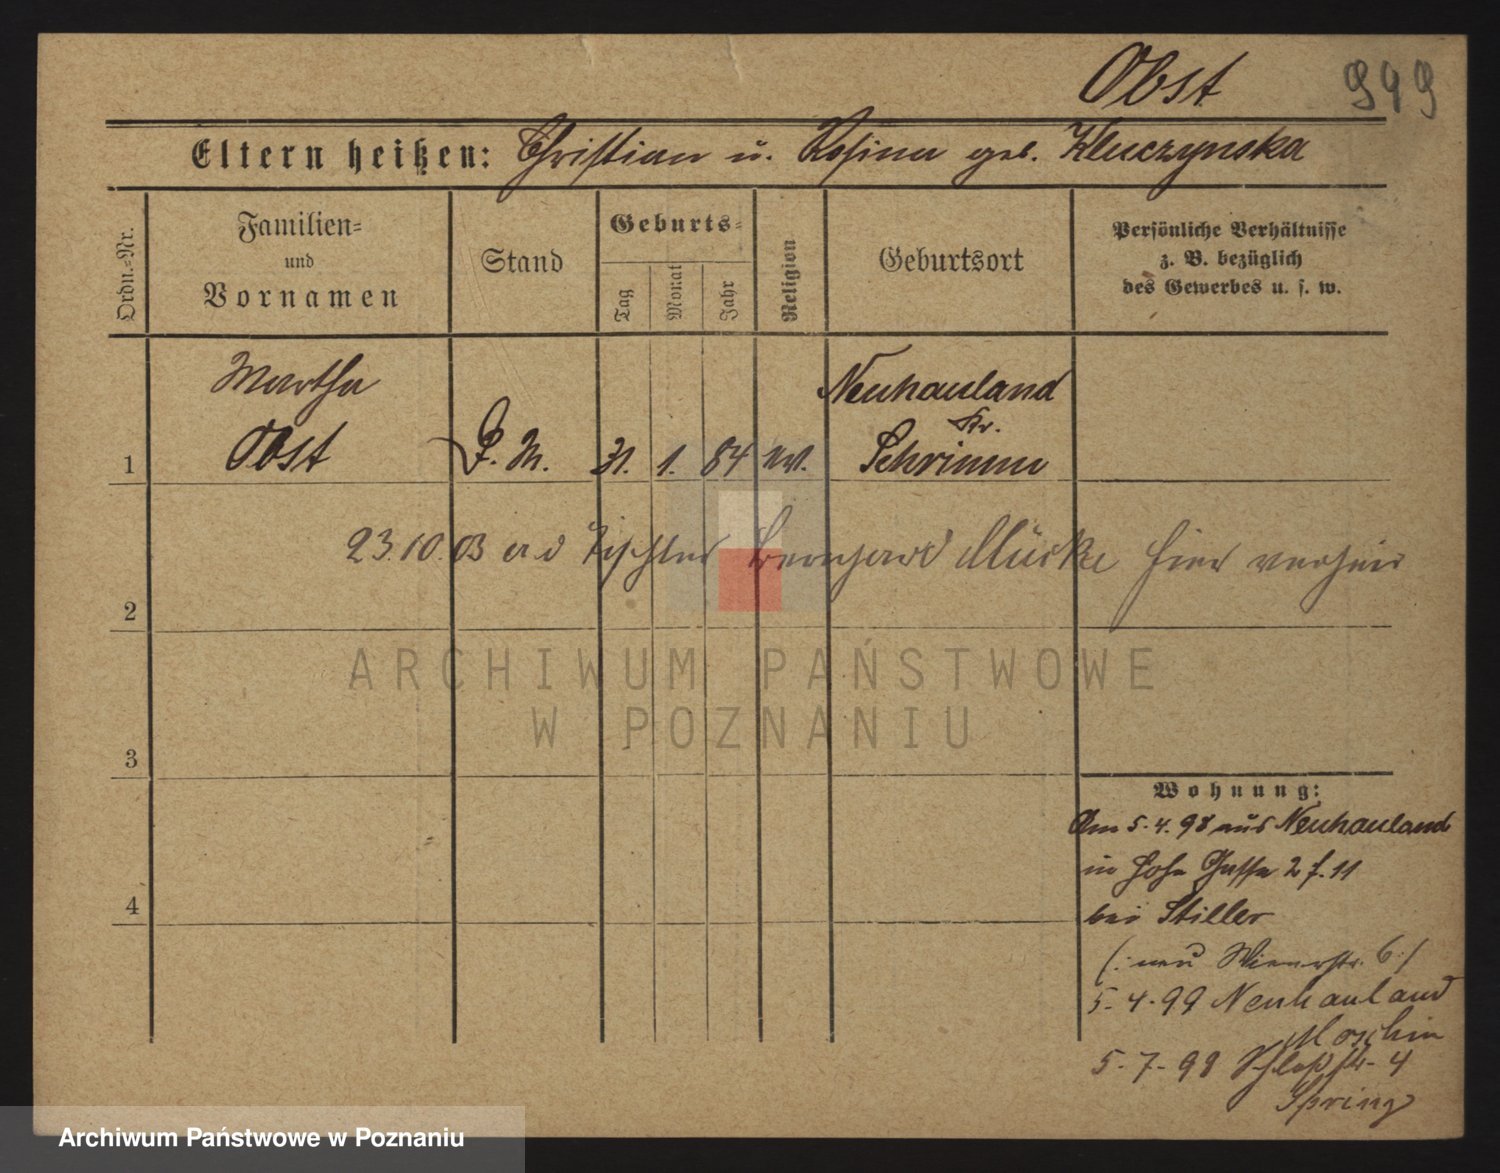 Obst
999
Eltern heißen: Christian u. Rosina geb. Kluczynska
Ordn.-Nr.
Familien-
und
Vornamen
Stand
Geburts-
Tag
Monat
Jahr
Religion
Geburtsort
Persönliche Verhältnisse
z. B. bezüglich
des Gewerbes u. s. w.
Martha
Obst
1
D. M.
31.
1.
84
ev.
Neuhauland
Kr.
Schrimm
23.10.03 a d Tischler Bernhard Mücke hier verheir
2
ARCHIWUM PAŃSTWOWE
W POZNANIU
3
Wohnung:
Am 5.4.98 aus Neuhauland
in Hohe Gasse 2 f. 11
4
bei Stiller
(: neu Wienerstr. 6 :)
5.-4.-99 Neuhauland
Moschin
5.-7.-99 Schloßstr. 4
Spring
Archiwum Państwowe w Poznaniu